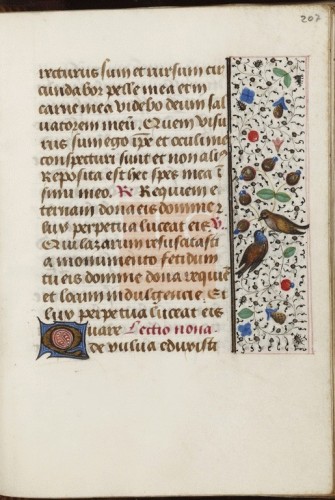 207
recturus sum et rursum cir
cundabor pelle mea et in
carne mea videbo deum sal
vatorem meū. Quem visu
rus sum ego ip̄e et oculi mei
conspecturi sunt et non ali9
Reposita est hec spes mea ī
sinu meo. R Requiem e
ternam dona eis domine
lux perpetua luceat eis V.
Qui lazarum resuscitasti
a monumento fetidum
tu eis domine dona requiē
et locum indulgencie. Et
lux perpetua luceat eis
Quare Lectio nona
de vulva eduxisti